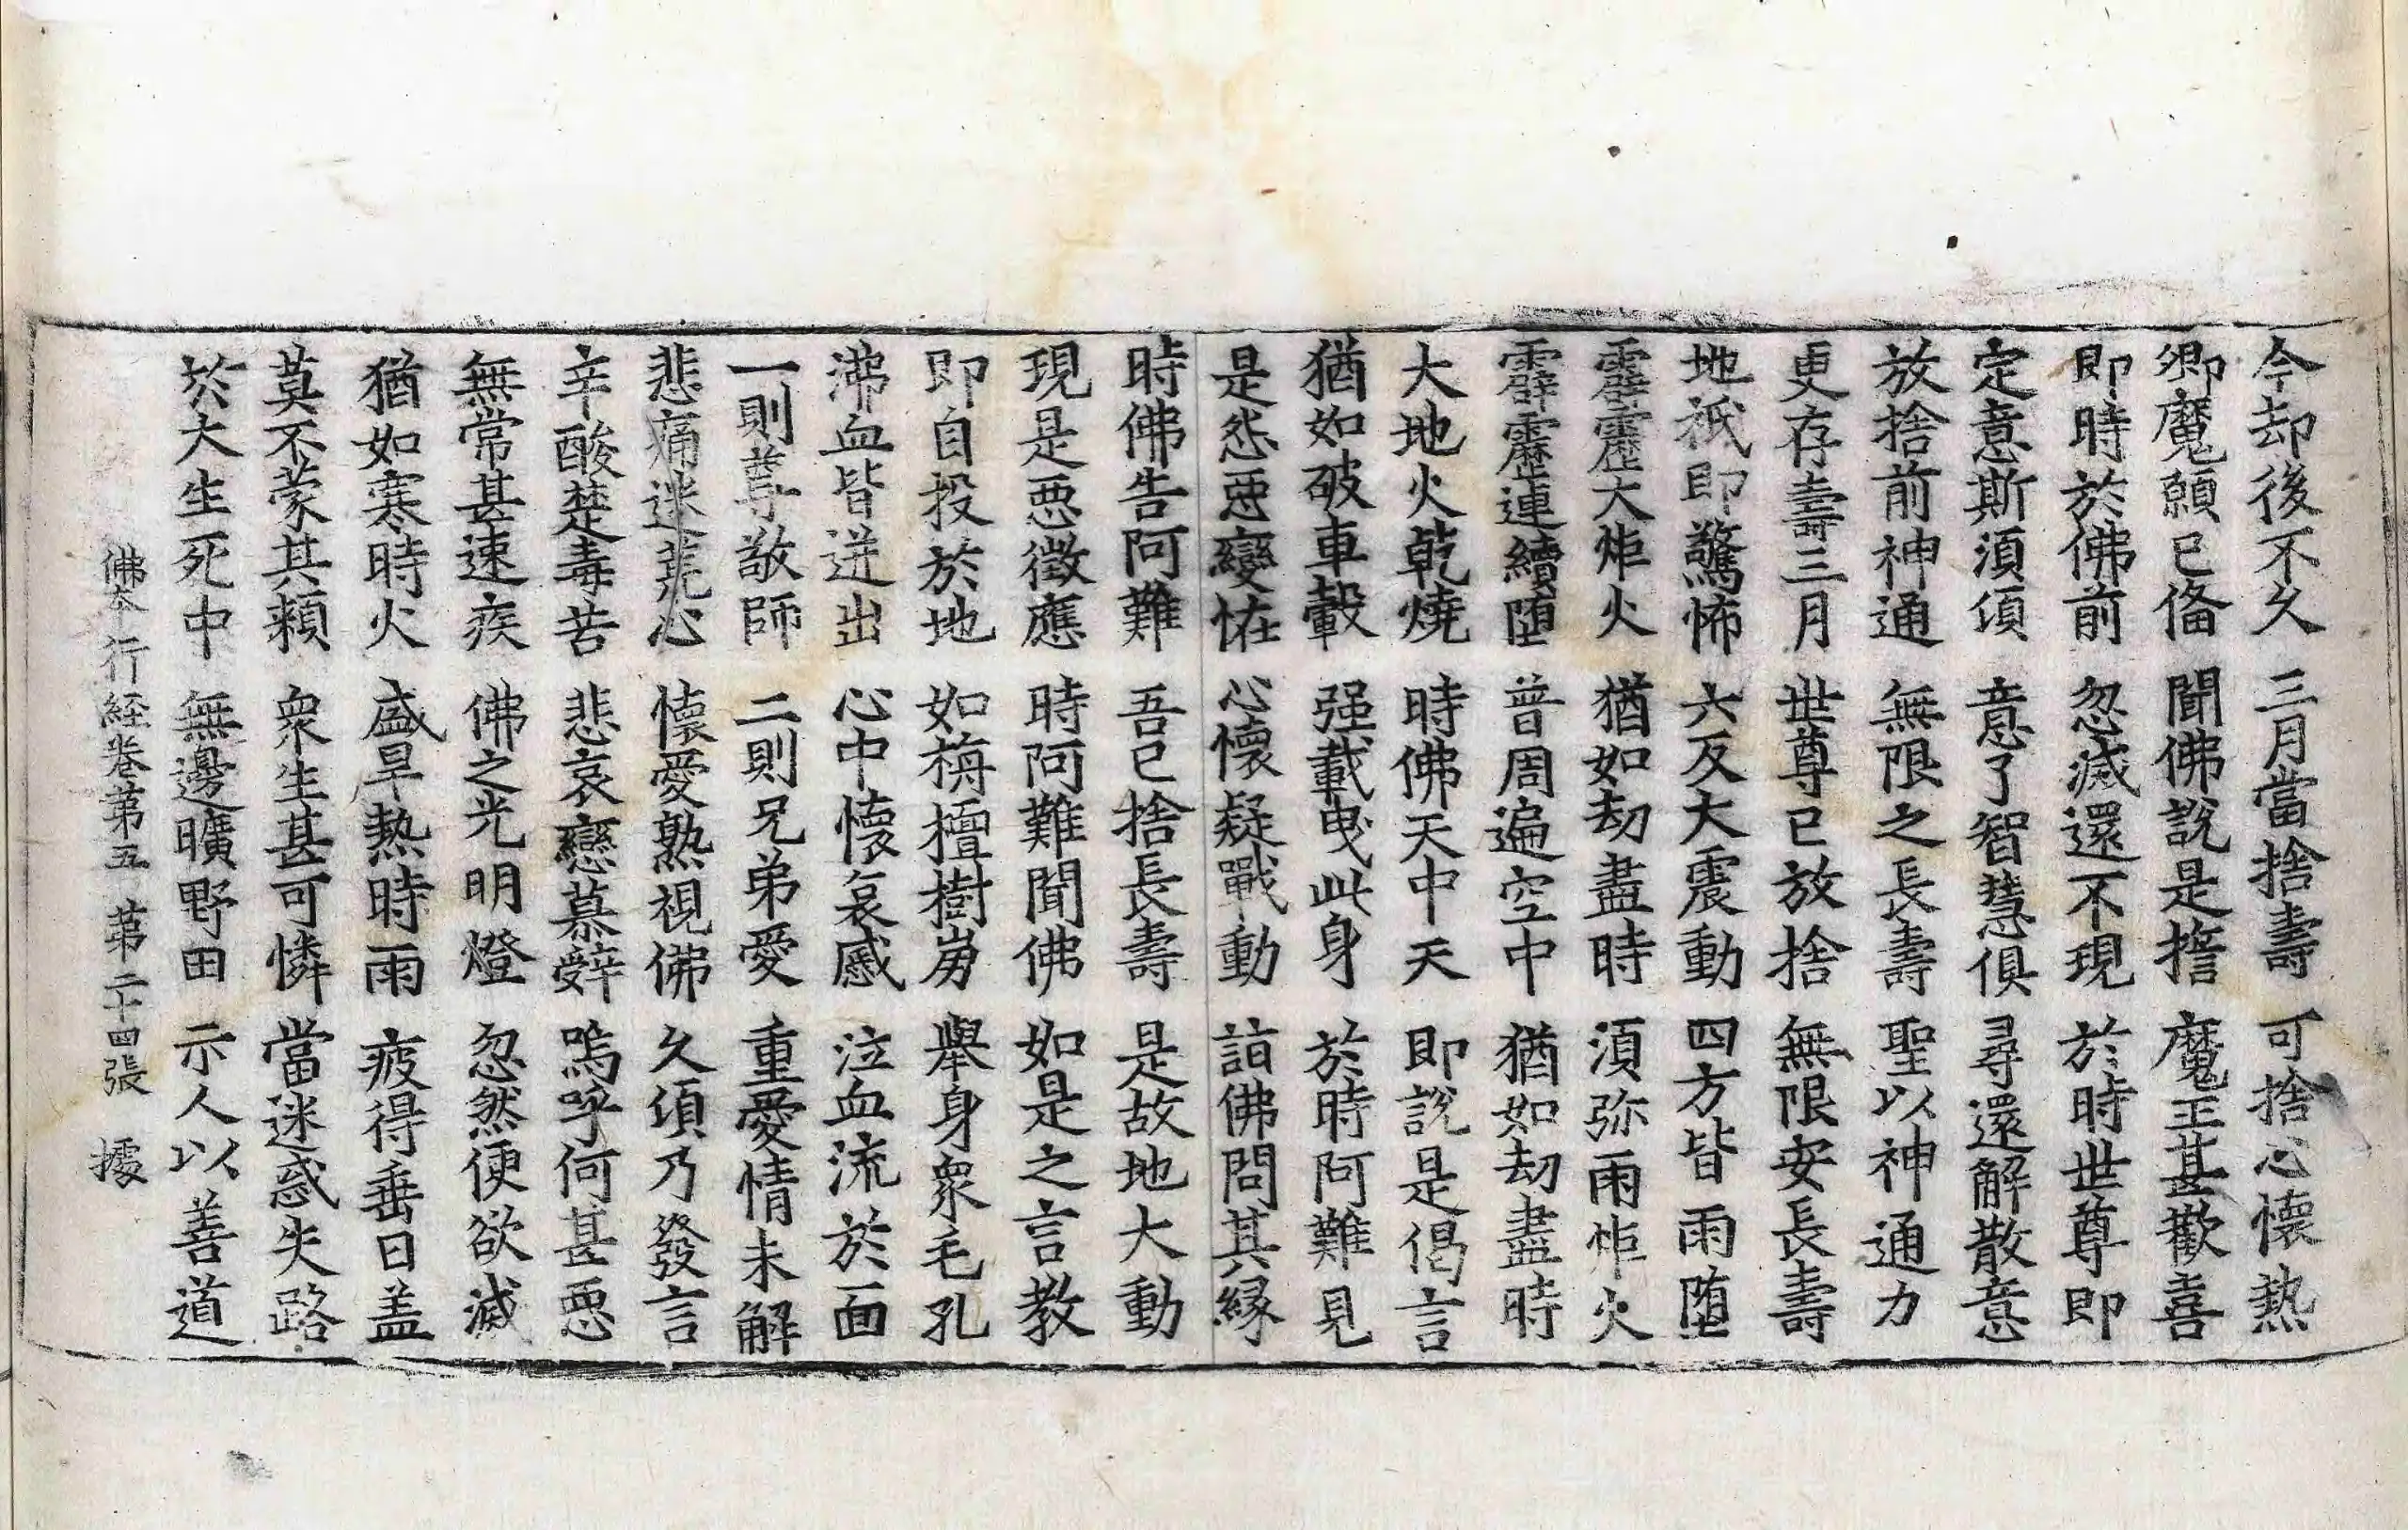 今却後不久 三月當捨壽 可捨心懷熱
卿魔願已俻 聞佛說是擔 魔王甚歡喜
即時於佛前 忽滅還不現 於時世尊即
定意斯湏頃 意了智慧俱 尋還解散意
放捨前神通 無限之長壽 聖以神通力
更存壽三月 世尊已放捨 無限安長壽
地祇即驚怖 六反大震動 四方皆雨墮
霹靂大炬火 猶如劫盡時 湏弥雨炬火
霹靂連續墮 普周遍空中 猶如劫盡時
大地火乾燒 時佛天中天 即說是偈言
猶如破車轂 强載曳此身 於時阿難見
是怣惡變恠 心懷疑戰動 詣佛問其縁
時佛告阿難 吾已捨長壽 是故地大動
現是惡徵應 時阿難聞佛 如是之言教
即自投於地 如栴檀樹崩 舉身衆毛孔
沸血皆迸出 心中懷哀慼 泣血流於面
一則尊敬師 二則兄弟愛 重愛情未解
悲痛迷荒心 懷愛熟視佛 久頃乃發言
辛酸楚毒苦 悲哀戀慕辤 嗚呼何甚惡
無常甚速疾 佛之光明燈 忽然便欲滅
猶如寒時火 盛旱熱時雨 疲得垂日盖
莫不蒙其賴 衆生甚可憐 當迷惑失路
於大生死中 無邊曠野田 示人以善道
佛本行経卷第五 第二十四張 據